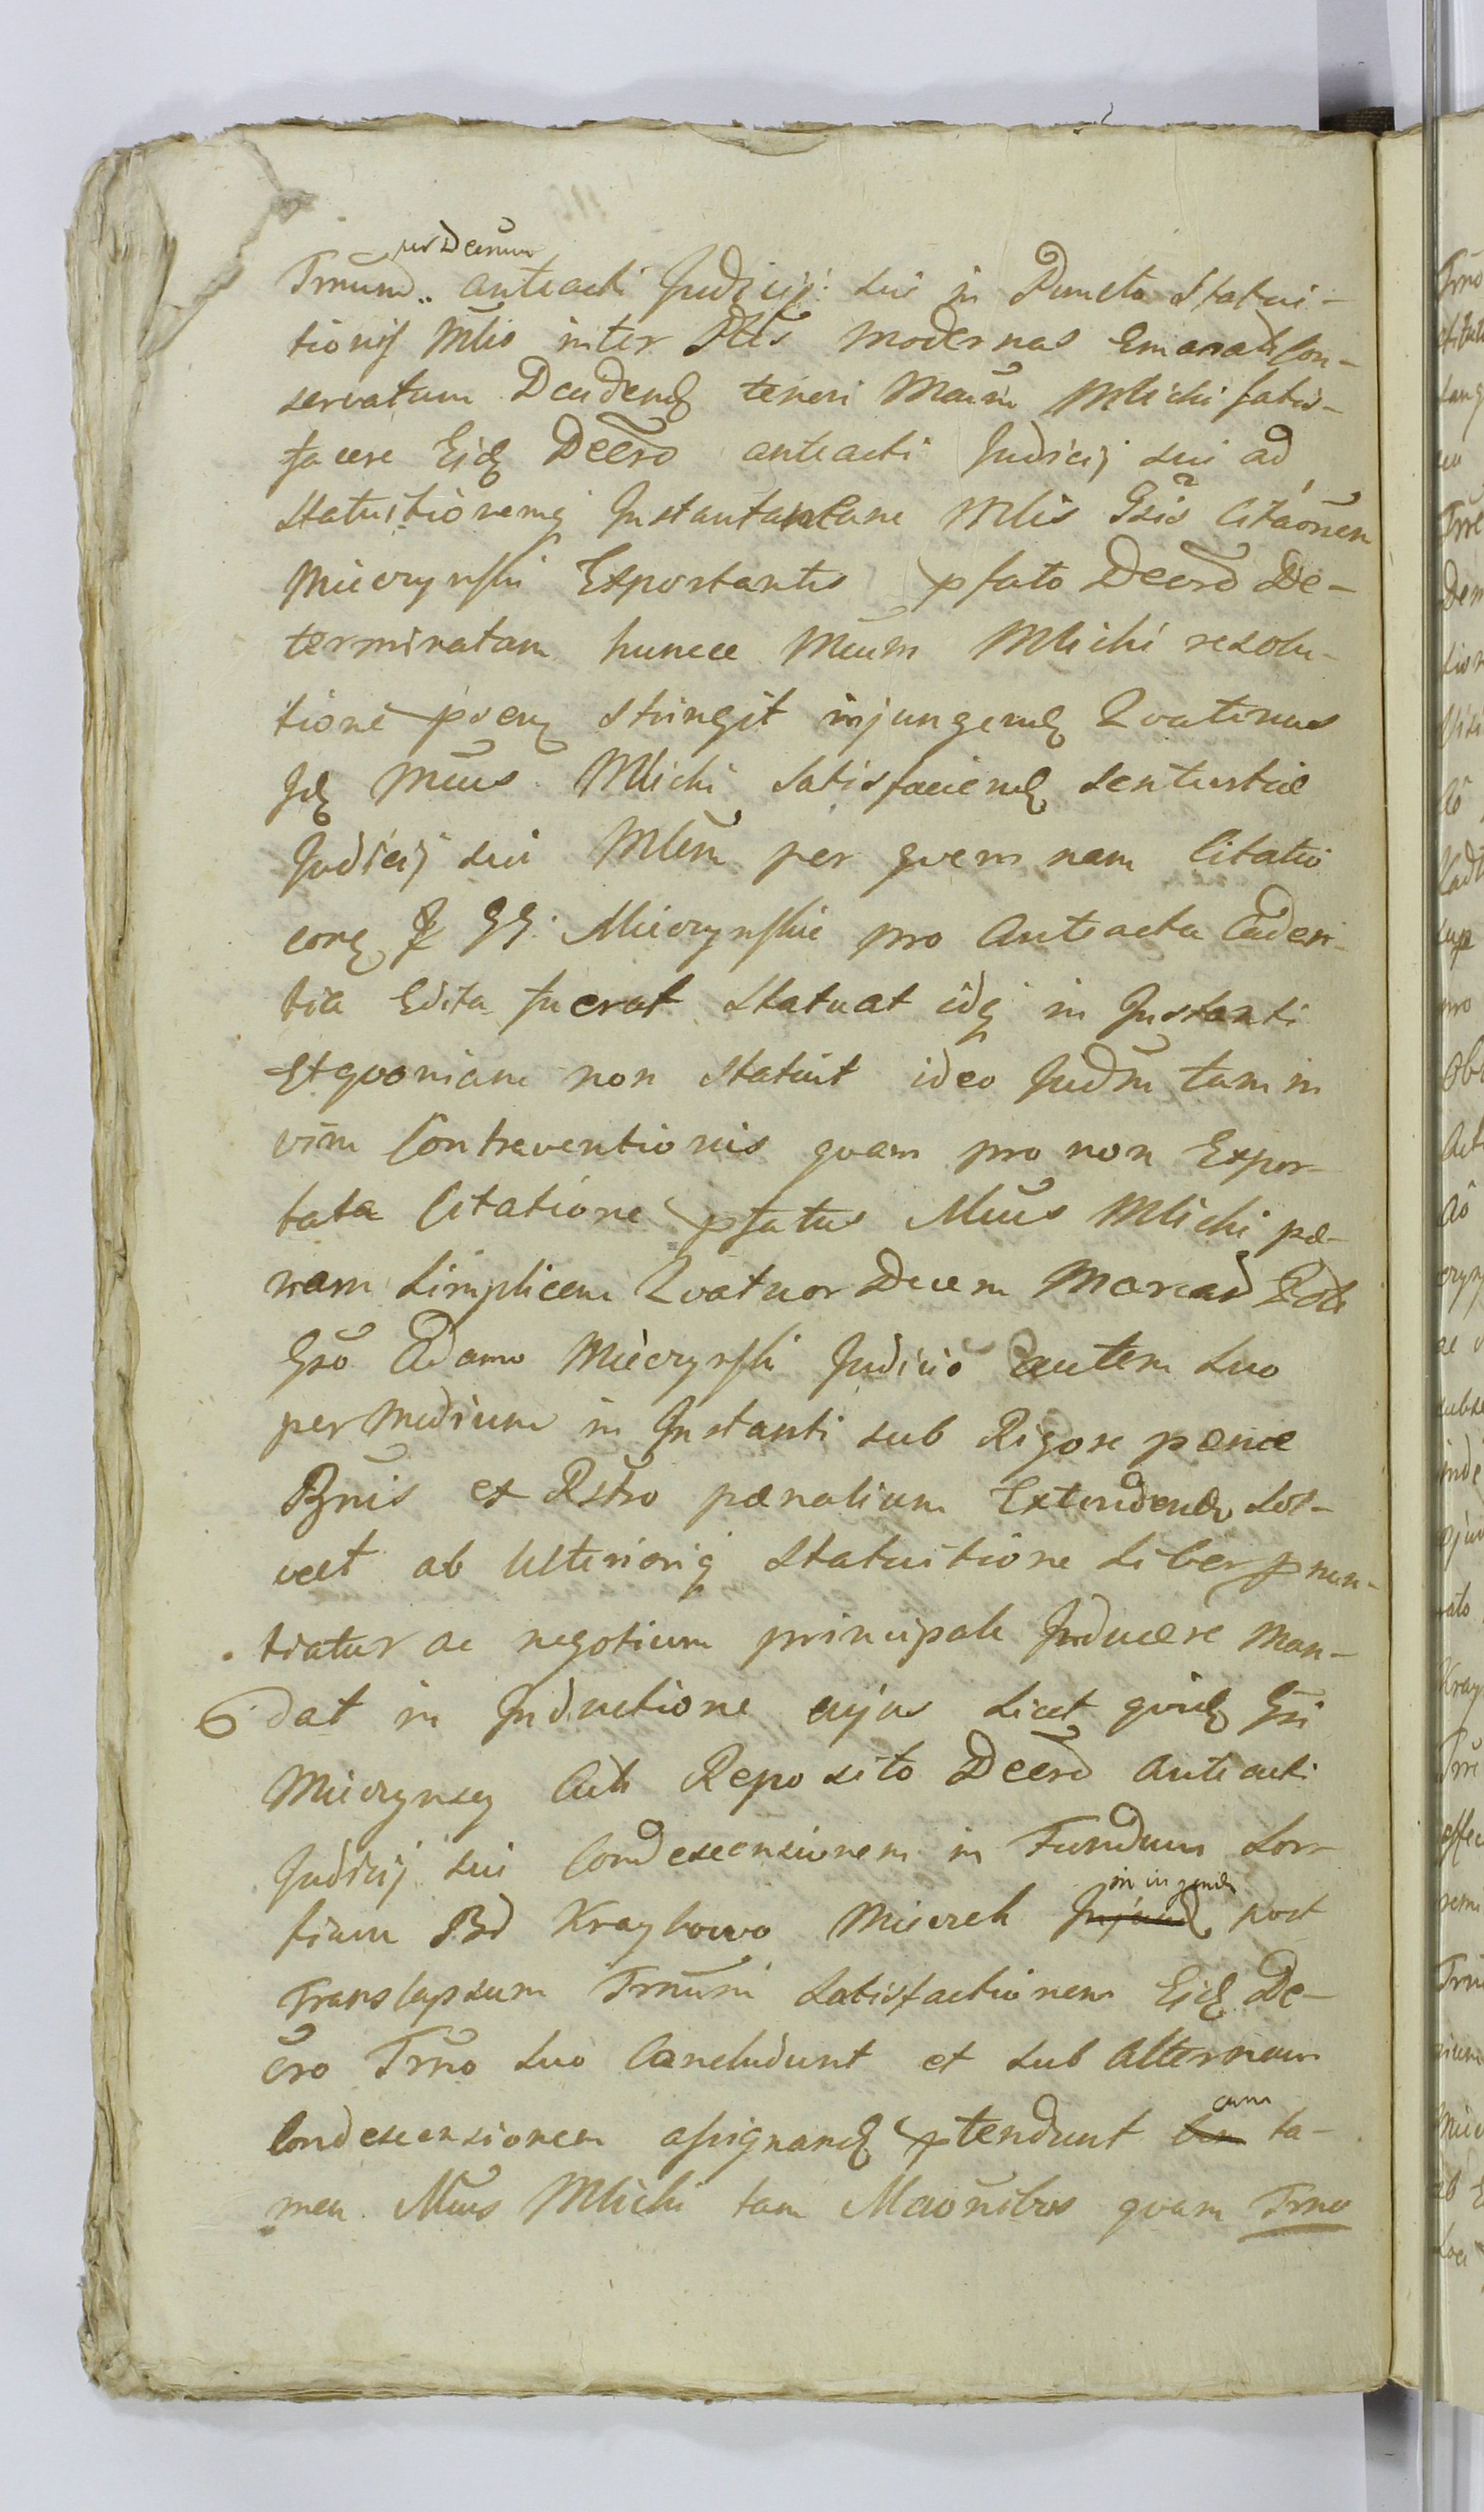 per Decrum
Trnum anteacti Judicij sui in Puncto Statui-
tionis Mlis inter Ptes modernas Emanati con-
servatum Decidend teneri Mcum Mlicki satis-
facere Eidq Decro anteacti Judicij sui ad
Statuitionemq Instantaneam Mlis Gsis Citaonem
Mierzynski Exportantis pfato Decro De-
terminatam hunce Mcum Mlicki resolu-
tione psenq stringit injungendq Qvatenus
Idq Mcus Mlicki Satisfaciendq Sententiae
Judicij sui Mlem per qvem nam Citatio
corq GG. Mierzynskie pro anteacta Caden-
tia Edita fuerat Statuat idq in Instanti
Et qvoniam non Statuit ideo Judm tam in
vim Contraventionis qvam pro non Expor-
tata Citatione pfatus Mcus Mlicki pæ-
nam Simplicem Qvatuor Decem Marcas Pol
Gso Adamo Mierzynski Judicio autem Suo
per Medium in Instanti sub Rigore pænæ
Bnis ex Rstro pænalium Extendend Sol-
vat ab Ulterioriq Statuitione Liber pnun-
tiatur ac negotium principale Inducere Man-
dat in Inductione cujus Licet qvidq Gsi
Mierzynscy Acti Reposito Decro Anteacti
Judicij sui Condescensionem in Fundum Sor-
tium Bd Kraykowo Mierzch post
Translapsum Trnum Satisfactionem Eidq De-
cro Trno Suo Concludunt et sub alternam
Condescensionem assignandq ptendunt cum ta-
men Mcus Mlicki tam Maonibus qvam Trno